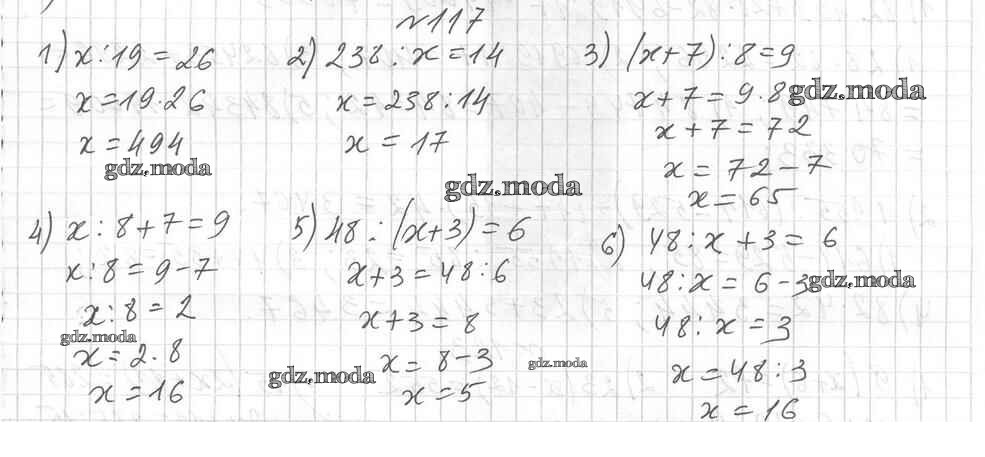 №117
1) x : 19 = 26
x = 19 · 26
x = 494
gdz.moda
2) 238 : x = 14
x = 238 : 14
x = 17
gdz.moda
3) (x + 7) : 8 = 9
x + 7 = 9 · 8 gdz.moda
x + 7 = 72
x = 72 - 7
x = 65
4) x : 8 + 7 = 9
x : 8 = 9 - 7
x : 8 = 2
gdz.moda
x = 2 · 8
x = 16
5) 48 : (x + 3) = 6
x + 3 = 48 : 6
x + 3 = 8
x = 8 - 3
gdz.moda
x = 5
gdz.moda
6) 48 : x + 3 = 6
48 : x = 6 - 3 gdz.moda
48 : x = 3
x = 48 : 3
x = 16